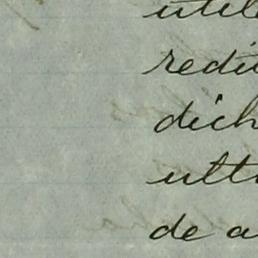 utile
redu
dich
ulti
de a